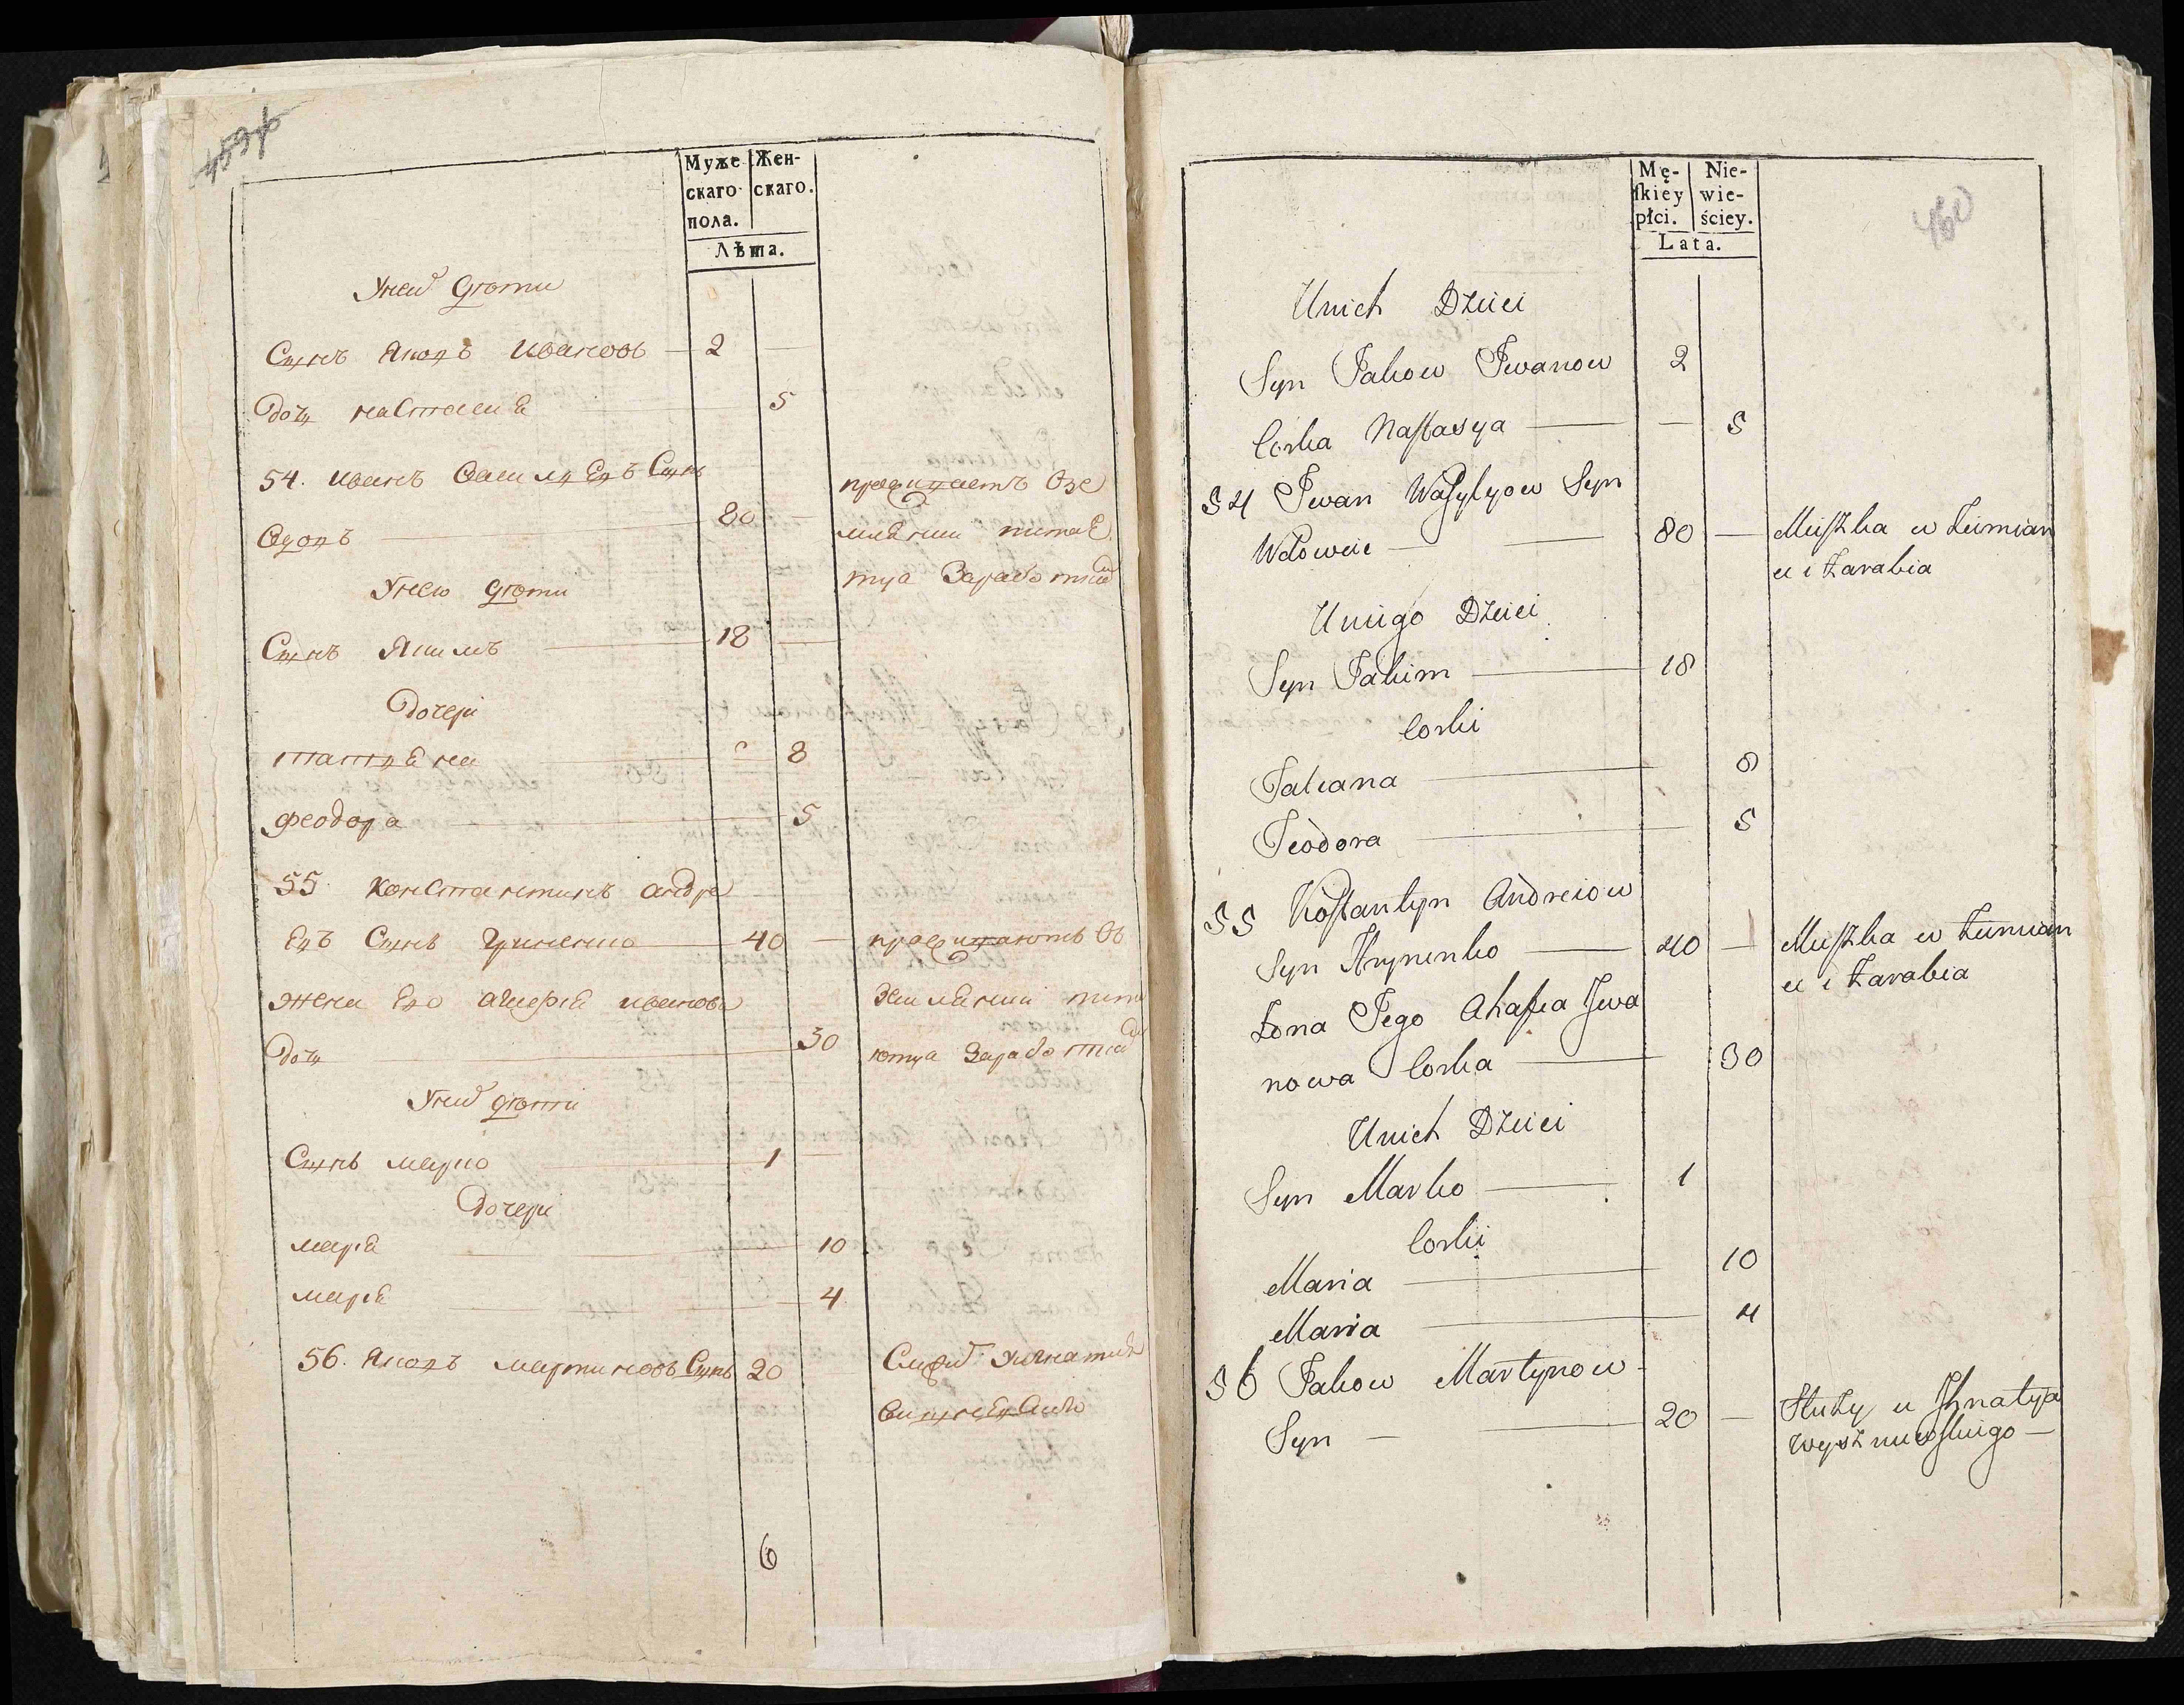 Муже
скаго
пола.
Жен-
скаго.
Лѣта.
Унеи дѣти
Сынъ Яковъ Ивановъ — 2 —
Доч Настасиа — 5
54. Иванъ Василевъ Сынъ
Вдовъ — 80 —
проживаетъ взе
млянки питае
тца Заработкой
Унево дѣти
Сынъ Якимъ — 18 —
Дочери
татиана — 8
феодора — 5
55. Констаннтинъ андре
евъ Сынъ Гриненко — 40 —
проживаютъ въ
жена Ево агафиа иванова
Землянки пита
Доч — 30
ютца Заработкой
Унеи дѣти
Сынъ марко — 1 —
Дочери
мариа — 10
мариа — 4
56. Яковъ мартиновъ Сынъ 20
Служи Уигната
Вишневского
6
460
Mę-
skiey
płci.
Nie-
wie-
ściey.
Lata.
Unich Dzieci
Syn Jakow Jwanow 2
Corka Nastasya — — 5
54 Jwan Wasylyow Syn
Wdowiec — 80 — Mieszka w Ziemian
u i Zarabia
Uniego Dzieci
Syn Jakim — 18
Corki
Tatiana — 8
Teodora — 5
55 Kostantyn Andreiow
Syn Hrynenko — 40 — Mieszka w Ziemian
u i Zarabia
Zona Jego Ahafia Jwa
nowa Corka — 30
Unich Dzieci
Syn Marko — 1
Corki
Maria — 10
Maria — 4
56 Jakow Martynow
Syn — 20 — Służy u Jhnatya
Wyszniewskiego —